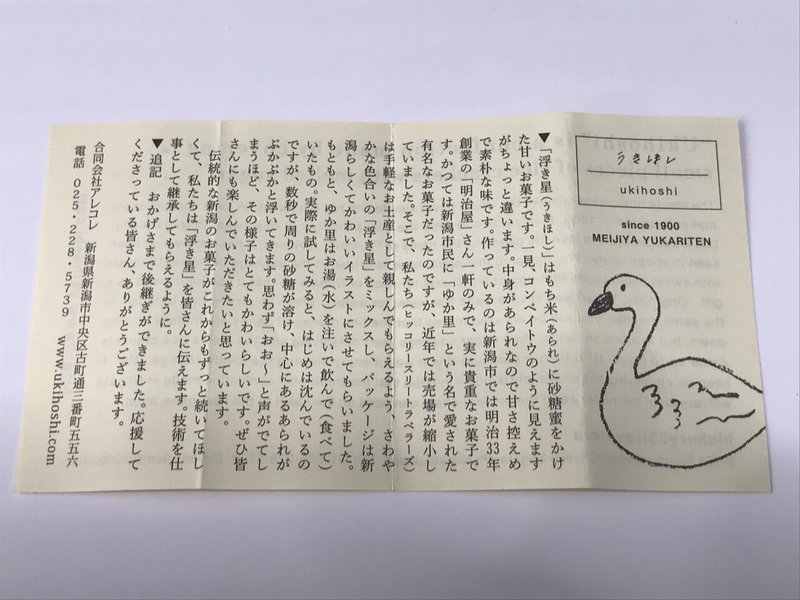 うきほし
ukihoshi
since 1900
MEIJIYA YUKARITEN
▼「浮き星(うきほし)」はもち米(あられ)に砂糖蜜をかけ
た甘いお菓子です。一見、コンペイトウのように見えます
がちょっと違います。中身があられなので甘さ控えめ
で素朴な味です。作っているのは新潟市では明治33年
創業の「明治屋」さん一軒のみで、実に貴重なお菓子で
す。かつては新潟市民に「ゆか里」という名で愛された
有名なお菓子だったのですが、近年では売場が縮小し
ていました。そこで、私たち(ヒッコリースリートラベラーズ)
は手軽なお土産として親しんでもらえるよう、さわや
かな色合いの「浮き星」をミックスし、パッケージは新
潟らしくてかわいいイラストにさせてもらいました。
もともと、ゆか里はお湯(水)を注いで飲んで(食べて)
いたもの。実際に試してみると、はじめは沈んでいるの
ですが、数秒で周りの砂糖が溶け、中心にあるあられが
ぷかぷかと浮いてきます。思わず「おお〜」と声がでてし
まうほど、その様子はとてもかわいらしいです。ぜひ皆
さんにも楽しんでいただきたいと思っています。
伝統的な新潟のお菓子がこれからもずっと続いてほし
くて、私たちは「浮き星」を皆さんに伝えます。技術を仕
事として継承してもらえるように。
▼追記 おかげさまで後継ぎができました。応援して
くださっている皆さん、ありがとうございます。
合同会社アレコレ 新潟県新潟市中央区古町通三番町五五六
電話 025・228・5739 www.ukihoshi.com